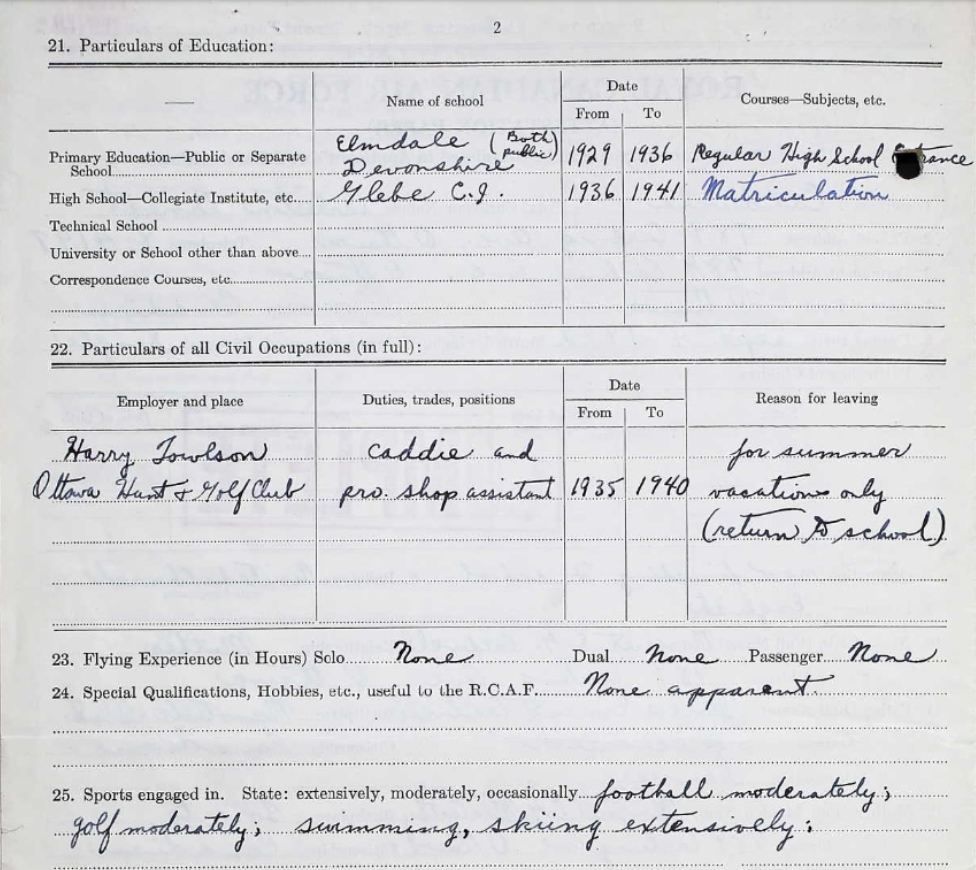 2
21. Particulars of Education:
Name of school
Date
From To
Courses—Subjects, etc.
Primary Education—Public or Separate School Elmdale (Both public) Devonshire 1929 1936 Regular High School Entrance
High School—Collegiate Institute, etc. Glebe C.I. 1936 1941 Matriculation
Technical School
University or School other than above
Correspondence Courses, etc.
22. Particulars of all Civil Occupations (in full):
Employer and place
Duties, trades, positions
Date
From To
Reason for leaving
Harry Towlson caddie and for summer
Ottawa Hunt & Golf Club pro. shop assistant 1935 1940 vacations only
(return to school)
23. Flying Experience (in Hours) Solo None Dual None Passenger None
24. Special Qualifications, Hobbies, etc., useful to the R.C.A.F. None apparent
25. Sports engaged in. State: extensively, moderately, occasionally football moderately;
golf moderately; swimming, skiing extensively;